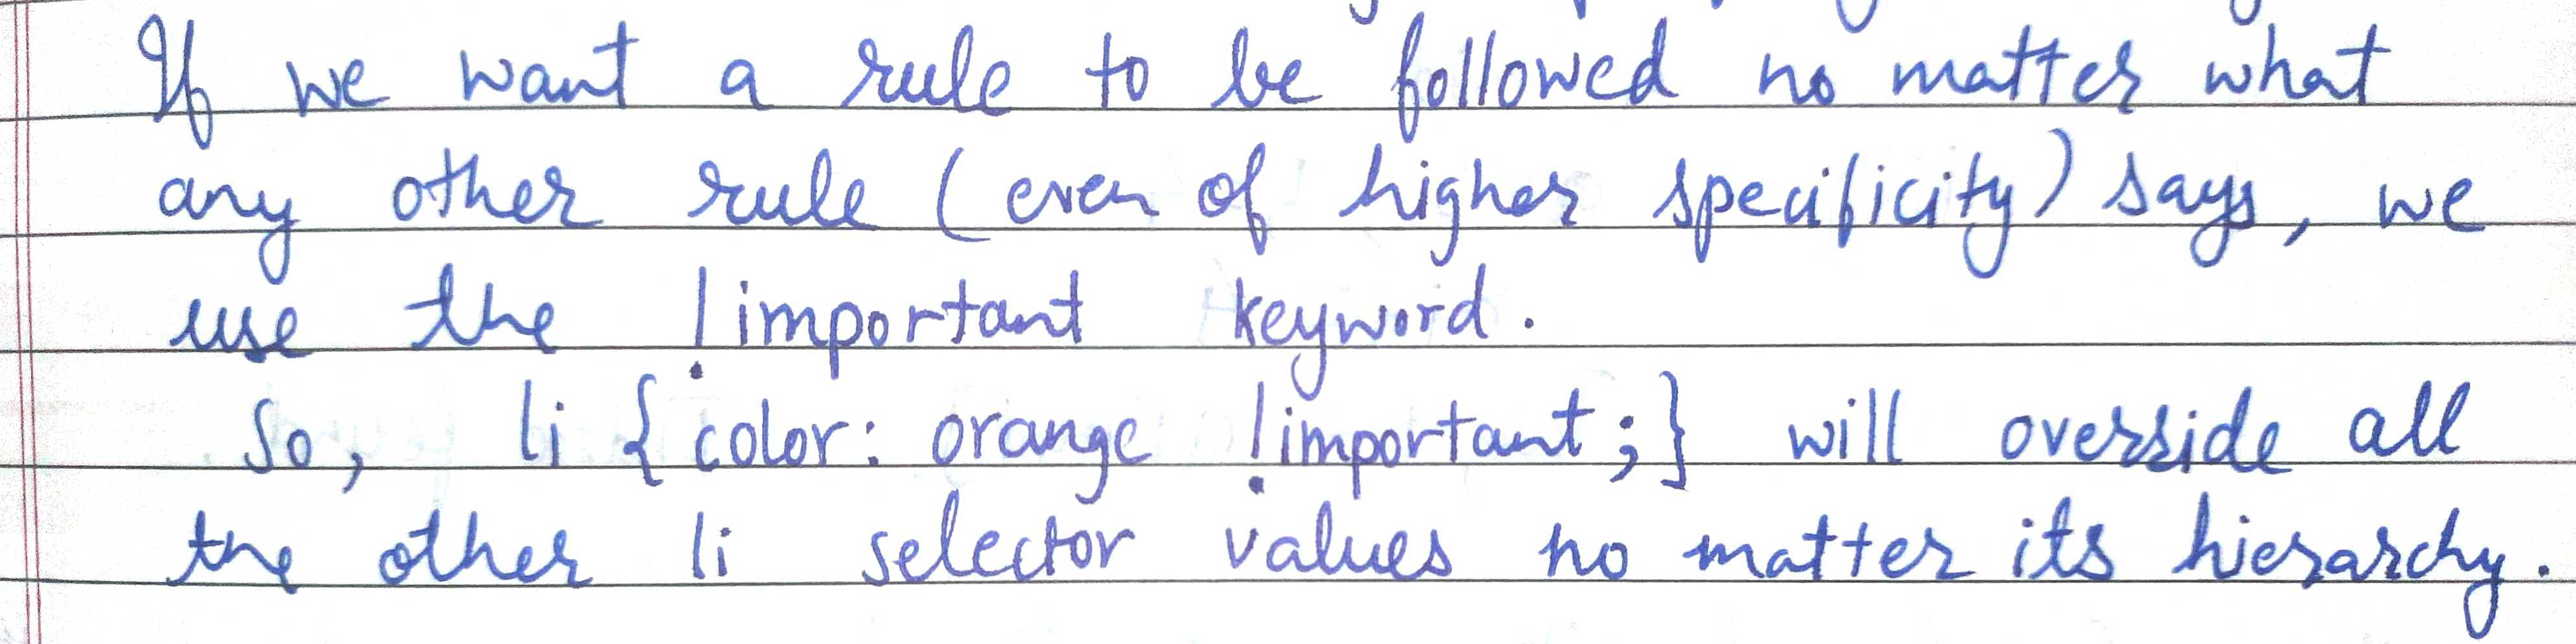 If we want a rule to be followed no matter what
any other rule (even of higher specificity) says, we
use the !important keyword.
So, li { color: orange !important; } will override all
the other li selector values no matter its hierarchy.